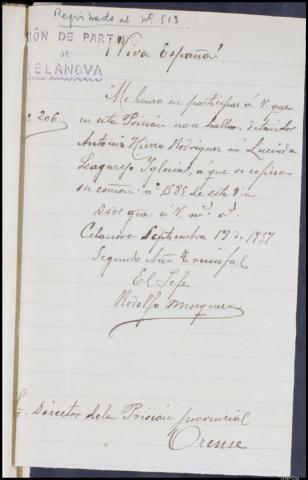 Registrado al Nº 513
IÓN DE PART
DE
CELANOVA
¡Viva España!
Me honro en participar á V. que
206 en esta Prisión no se hallan detenidos
Antonio Rodriguez ni Lucinda
Iglesias, á que se refiere
su comon. nº 1585 de este dia
Dios gue á V. ms. a.
Celanova Septiembre 18 de 1937
Segundo Año Triunfal
El Jefe
Rodolfo Mosquera
Sr. Director de la Prisión provincial
Orense